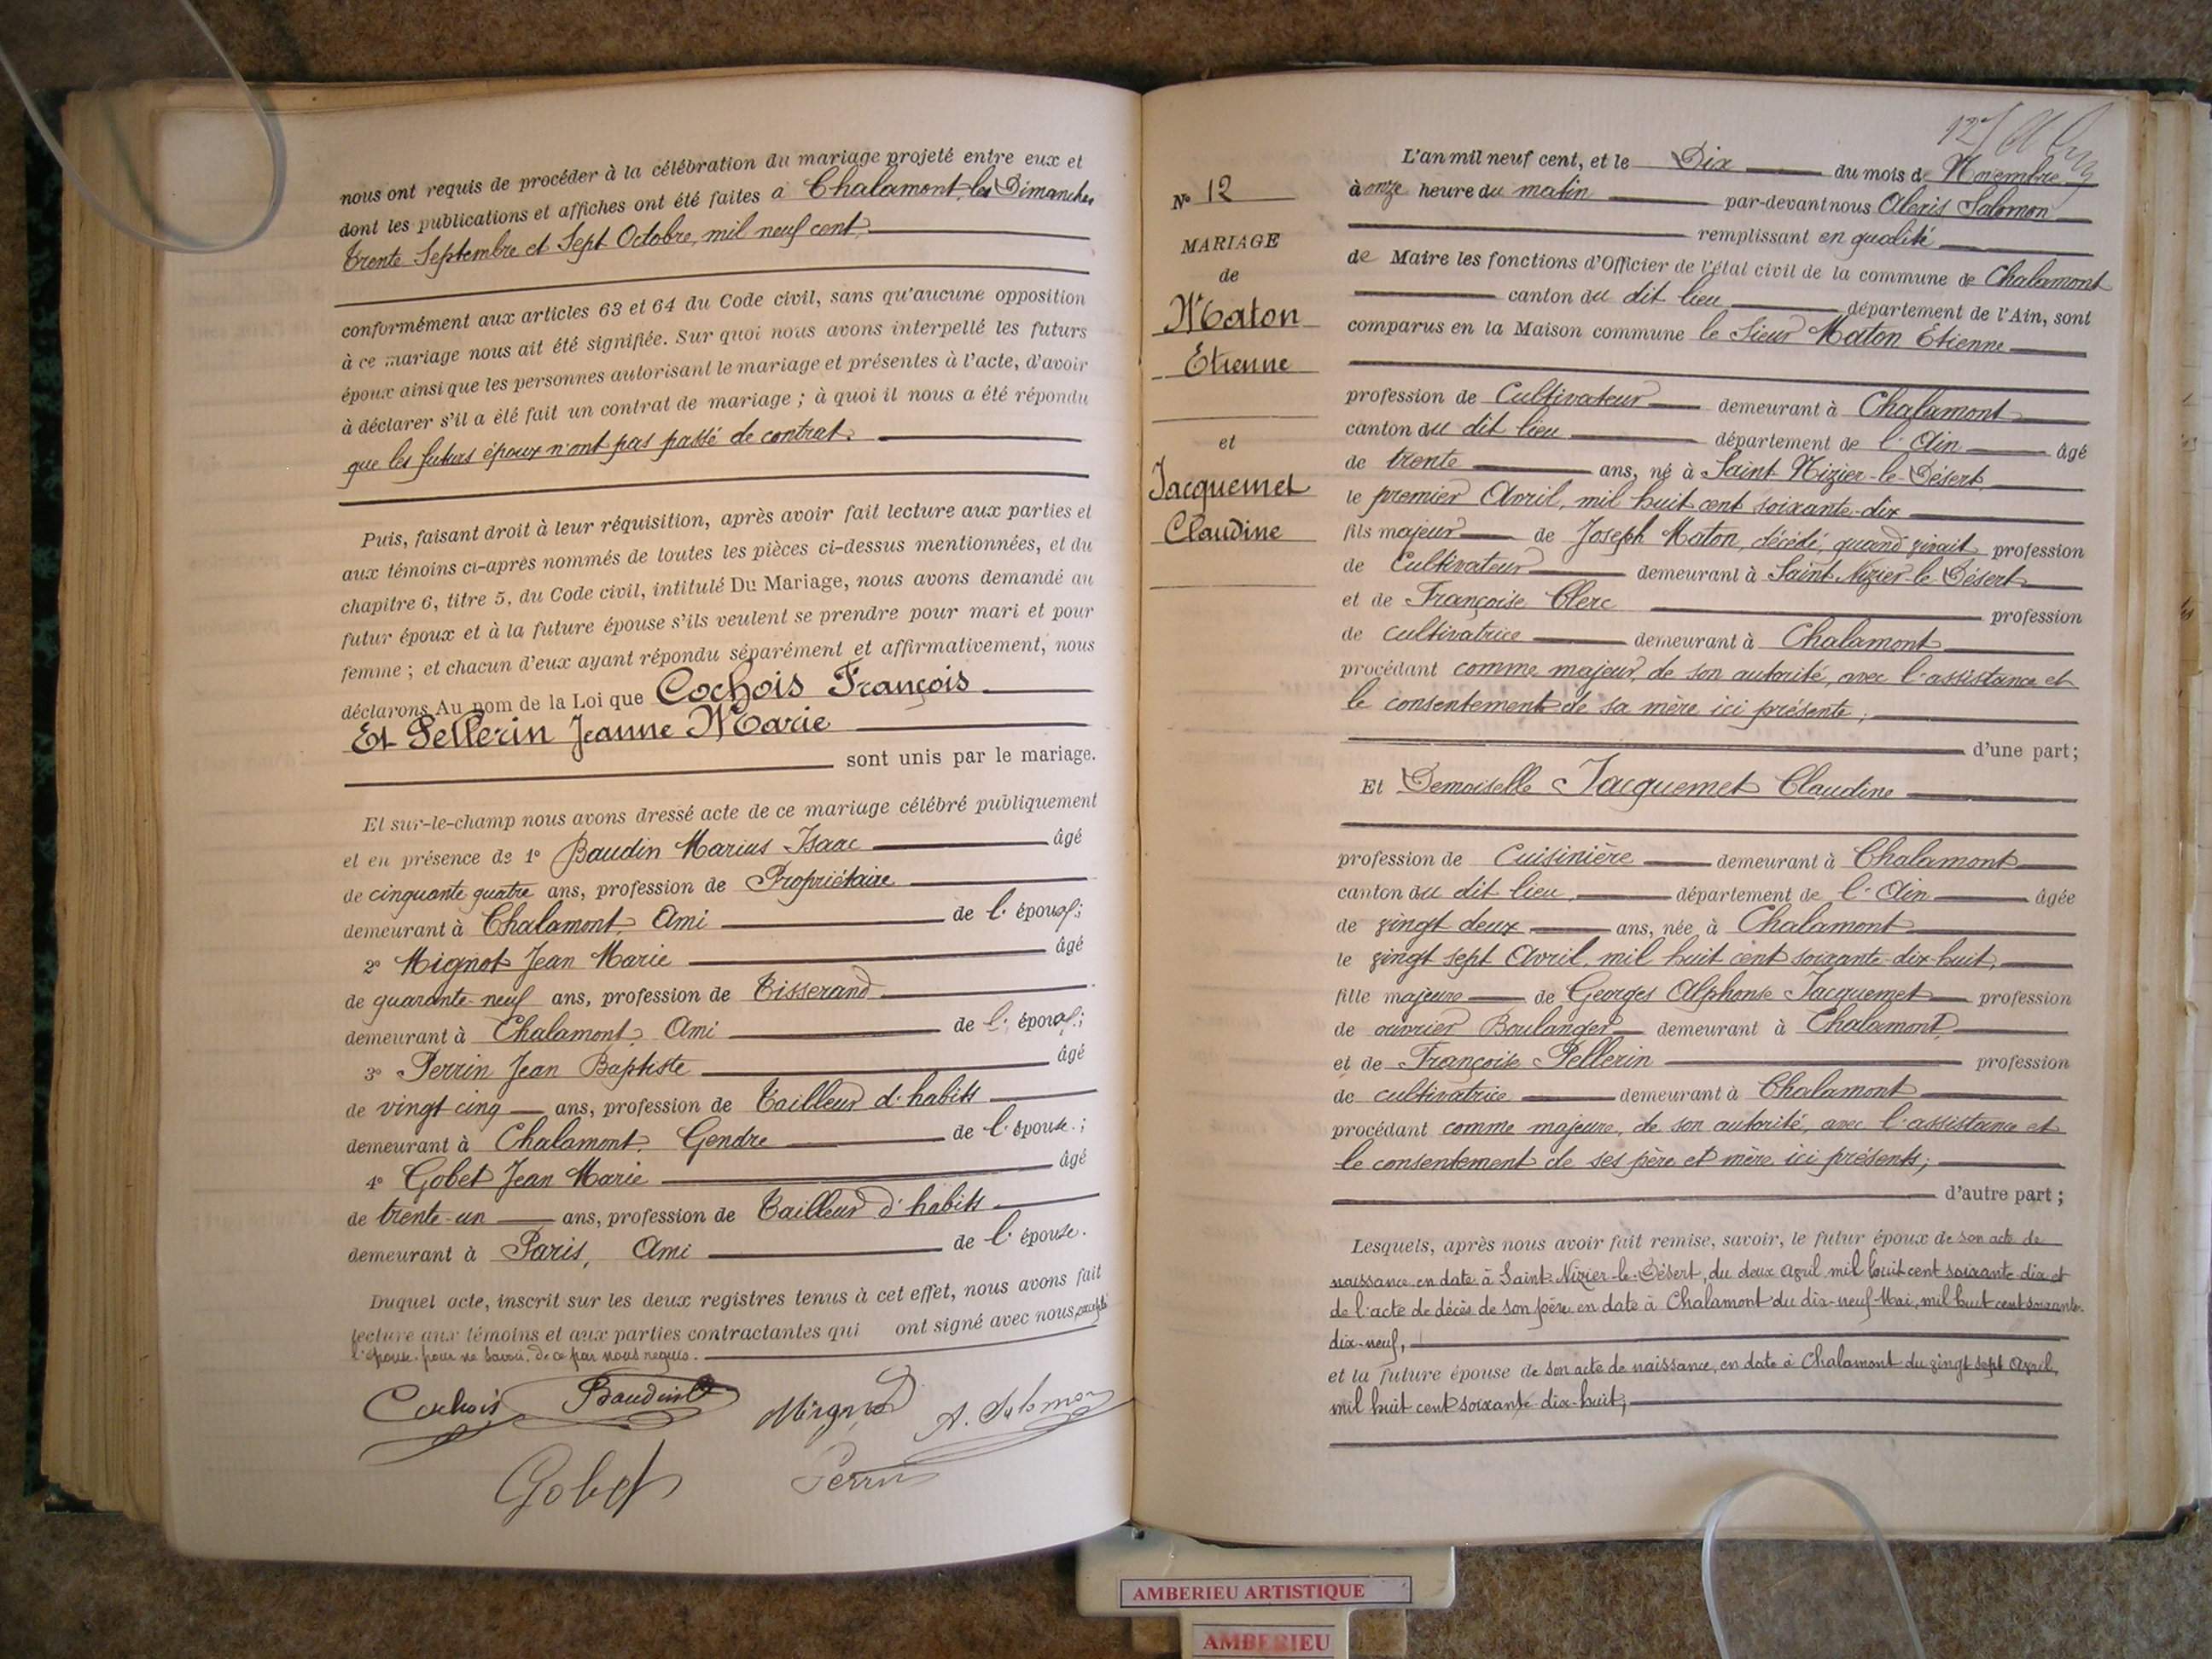 nous ont requis de procéder à la célébration du mariage projeté entre eux et
dont les publications et affiches ont été faites à Chalamont, les Dimanches
trente Septembre et Sept Octobre, mil neuf cent.
conformément aux articles 63 et 64 du Code civil, sans qu'aucune opposition
à ce mariage nous ait été signifiée. Sur quoi nous avons interpellé les futurs
époux ainsi que les personnes autorisant le mariage et présentes à l'acte, d'avoir
à déclarer s'il a été fait un contrat de mariage ; à quoi il nous a été répondu
que les futurs époux n'ont pas passé de contrat.
Puis, faisant droit à leur réquisition, après avoir fait lecture aux parties et
aux témoins ci-après nommés de toutes les pièces ci-dessus mentionnées, et du
chapitre 6, titre 5, du Code civil, intitulé Du Mariage, nous avons demandé au
futur époux et à la future épouse s'ils veulent se prendre pour mari et pour
femme ; et chacun d'eux ayant répondu séparément et affirmativement, nous
déclarons Au nom de la Loi que Cochois François
Et Pellerin Jeanne Marie
sont unis par le mariage.
Et sur-le-champ nous avons dressé acte de ce mariage célébré publiquement
et en présence de 1° Baudin Marius Isaac âgé
de cinquante quatre ans, profession de Propriétaire
demeurant à Chalamont, Ami de l'époux;
2° Mignot Jean Marie âgé
de quarante-neuf ans, profession de Tisserand
demeurant à Chalamont, Ami de l'époux;
3° Perrin Jean Baptiste âgé
de vingt cinq ans, profession de Tailleur d'habits
demeurant à Chalamont, Gendre de l'épouse;
4° Gobet Jean Marie âgé
de trente-un ans, profession de Tailleur d'habits
demeurant à Paris, Ami de l'épouse.
Duquel acte, inscrit sur les deux registres tenus à cet effet, nous avons fait
lecture aux témoins et aux parties contractantes qui ont signé avec nous, excepté
l'épouse pour ne savoir, de ce par nous requis.
Cochois Baudin Mignot A. Salomon
Gobet Perrin
12
N° 12
MARIAGE
de
Maton
Etienne
et
Jacquemet
Claudine
L'an mil neuf cent, et le Dix du mois de Novembre
à onze heure du matin par-devant nous Alexis Salomon
remplissant en qualité
de Maire les fonctions d'Officier de l'état civil de la commune de Chalamont
canton du dit lieu département de l'Ain, sont
comparus en la Maison commune le Sieur Maton Etienne
profession de Cultivateur demeurant à Chalamont
canton du dit lieu département de l'Ain âgé
de trente ans, né à Saint-Nizier-le-Désert
le premier Avril, mil huit cent soixante-dix
fils majeur de Joseph Maton, décédé, quand vivait profession
de Cultivateur demeurant à Saint Nizier-le-Désert
et de Françoise Clerc profession
de cultivatrice demeurant à Chalamont
procédant comme majeur, de son autorité, avec l'assistance et
le consentement de sa mère ici présente;
d'une part;
Et Demoiselle Jacquemet Claudine
profession de Cuisinière demeurant à Chalamont
canton du dit lieu département de l'Ain âgée
de vingt deux ans, née à Chalamont
le vingt sept Avril, mil huit cent soixante-dix-huit,
fille majeure de Georges Alphonse Jacquemet profession
de ouvrier Boulanger demeurant à Chalamont,
et de Françoise Pellerin profession
de cultivatrice demeurant à Chalamont
procédant comme majeure, de son autorité, avec l'assistance et
le consentement de ses père et mère ici présents;
d'autre part;
Lesquels, après nous avoir fait remise, savoir, le futur époux de son acte de
naissance en date à Saint-Nizier-le-Désert, du deux avril mil huit cent soixante dix et
de l'acte de décès de son père en date à Chalamont du dix-neuf Mai, mil huit cent soixante-
dix-neuf,
et la future épouse de son acte de naissance, en date à Chalamont du vingt sept Avril,
mil huit cent soixante-dix-huit;
AMBERIEU ARTISTIQUE
AMBERIEU